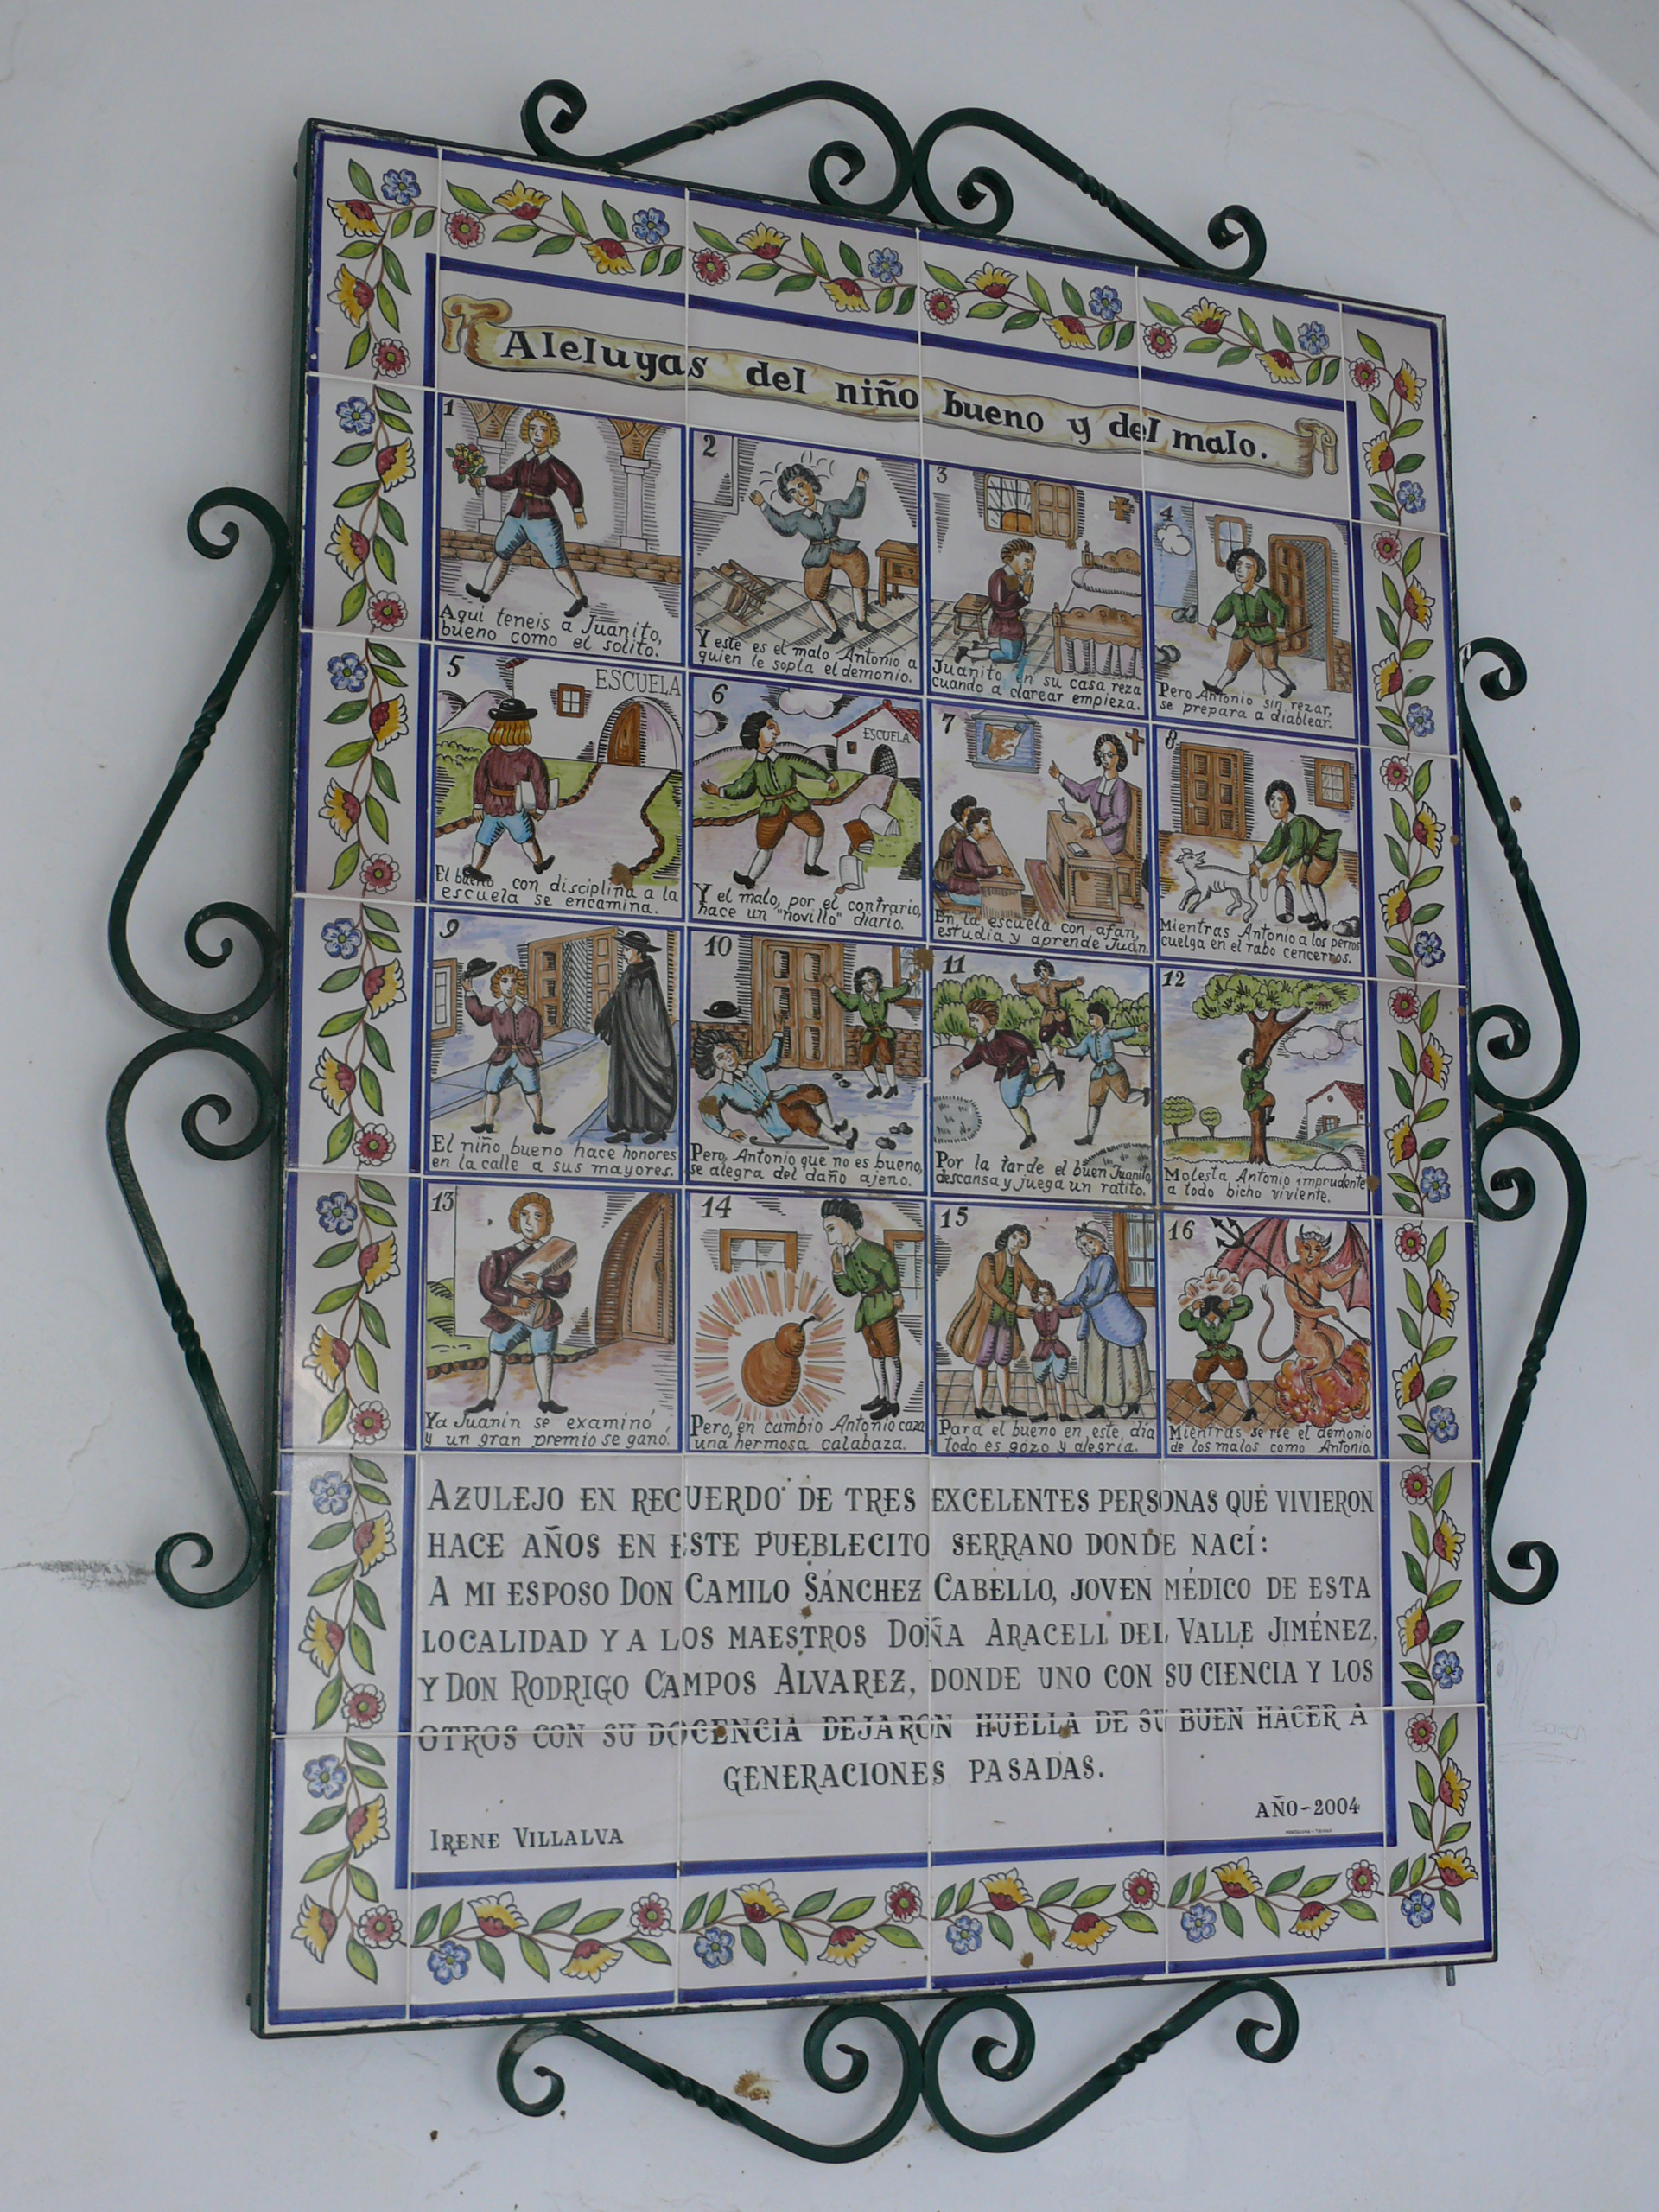 Aleluyas del niño bueno y del malo.
1
Aqui teneis a Juanito,
bueno como el solito.
2
Y este es el malo Antonio a
quien le sopla el demonio.
3
Juanito en su casa reza
cuando a clarear empieza.
4
Pero Antonio sin rezar,
se prepara a diablear.
5
ESCUELA
El bueno con disciplina a la
escuela se encamina.
6
ESCUELA
Y el malo, por el contrario,
hace un "novillo" diario.
7
En la escuela con afán,
estudia y aprende Juan.
8
Mientras Antonio a los perros
cuelga en el rabo cencerros.
9
El niño bueno hace honores
en la calle a sus mayores.
10
Pero, Antonio que no es bueno,
se alegra del daño ajeno.
11
Por la tarde el buen Juanito,
descansa y juega un ratito.
12
Molesta Antonio imprudente
a todo bicho viviente.
13
Ya Juanin se examinó
y un gran premio se ganó.
14
Pero, en cambio Antonio caza
una hermosa calabaza.
15
Para el bueno en este día
todo es gozo y alegria.
16
Mientras se rie el demonio
de los malos como Antonio.
AZULEJO EN RECUERDO DE TRES EXCELENTES PERSONAS QUÉ VIVIERON
HACE AÑOS EN ESTE PUEBLECITO SERRANO DONDE NACÍ:
A MI ESPOSO DON CAMILO SÁNCHEZ CABELLO, JOVEN MÉDICO DE ESTA
LOCALIDAD Y A LOS MAESTROS DOÑA ARACELI DEL VALLE JIMÉNEZ,
Y DON RODRIGO CAMPOS ALVAREZ, DONDE UNO CON SU CIENCIA Y LOS
OTROS CON SU DOCENCIA DEJARON HUELLA DE SU BUEN HACER A
GENERACIONES PASADAS.
AÑO-2004
IRENE VILLALVA